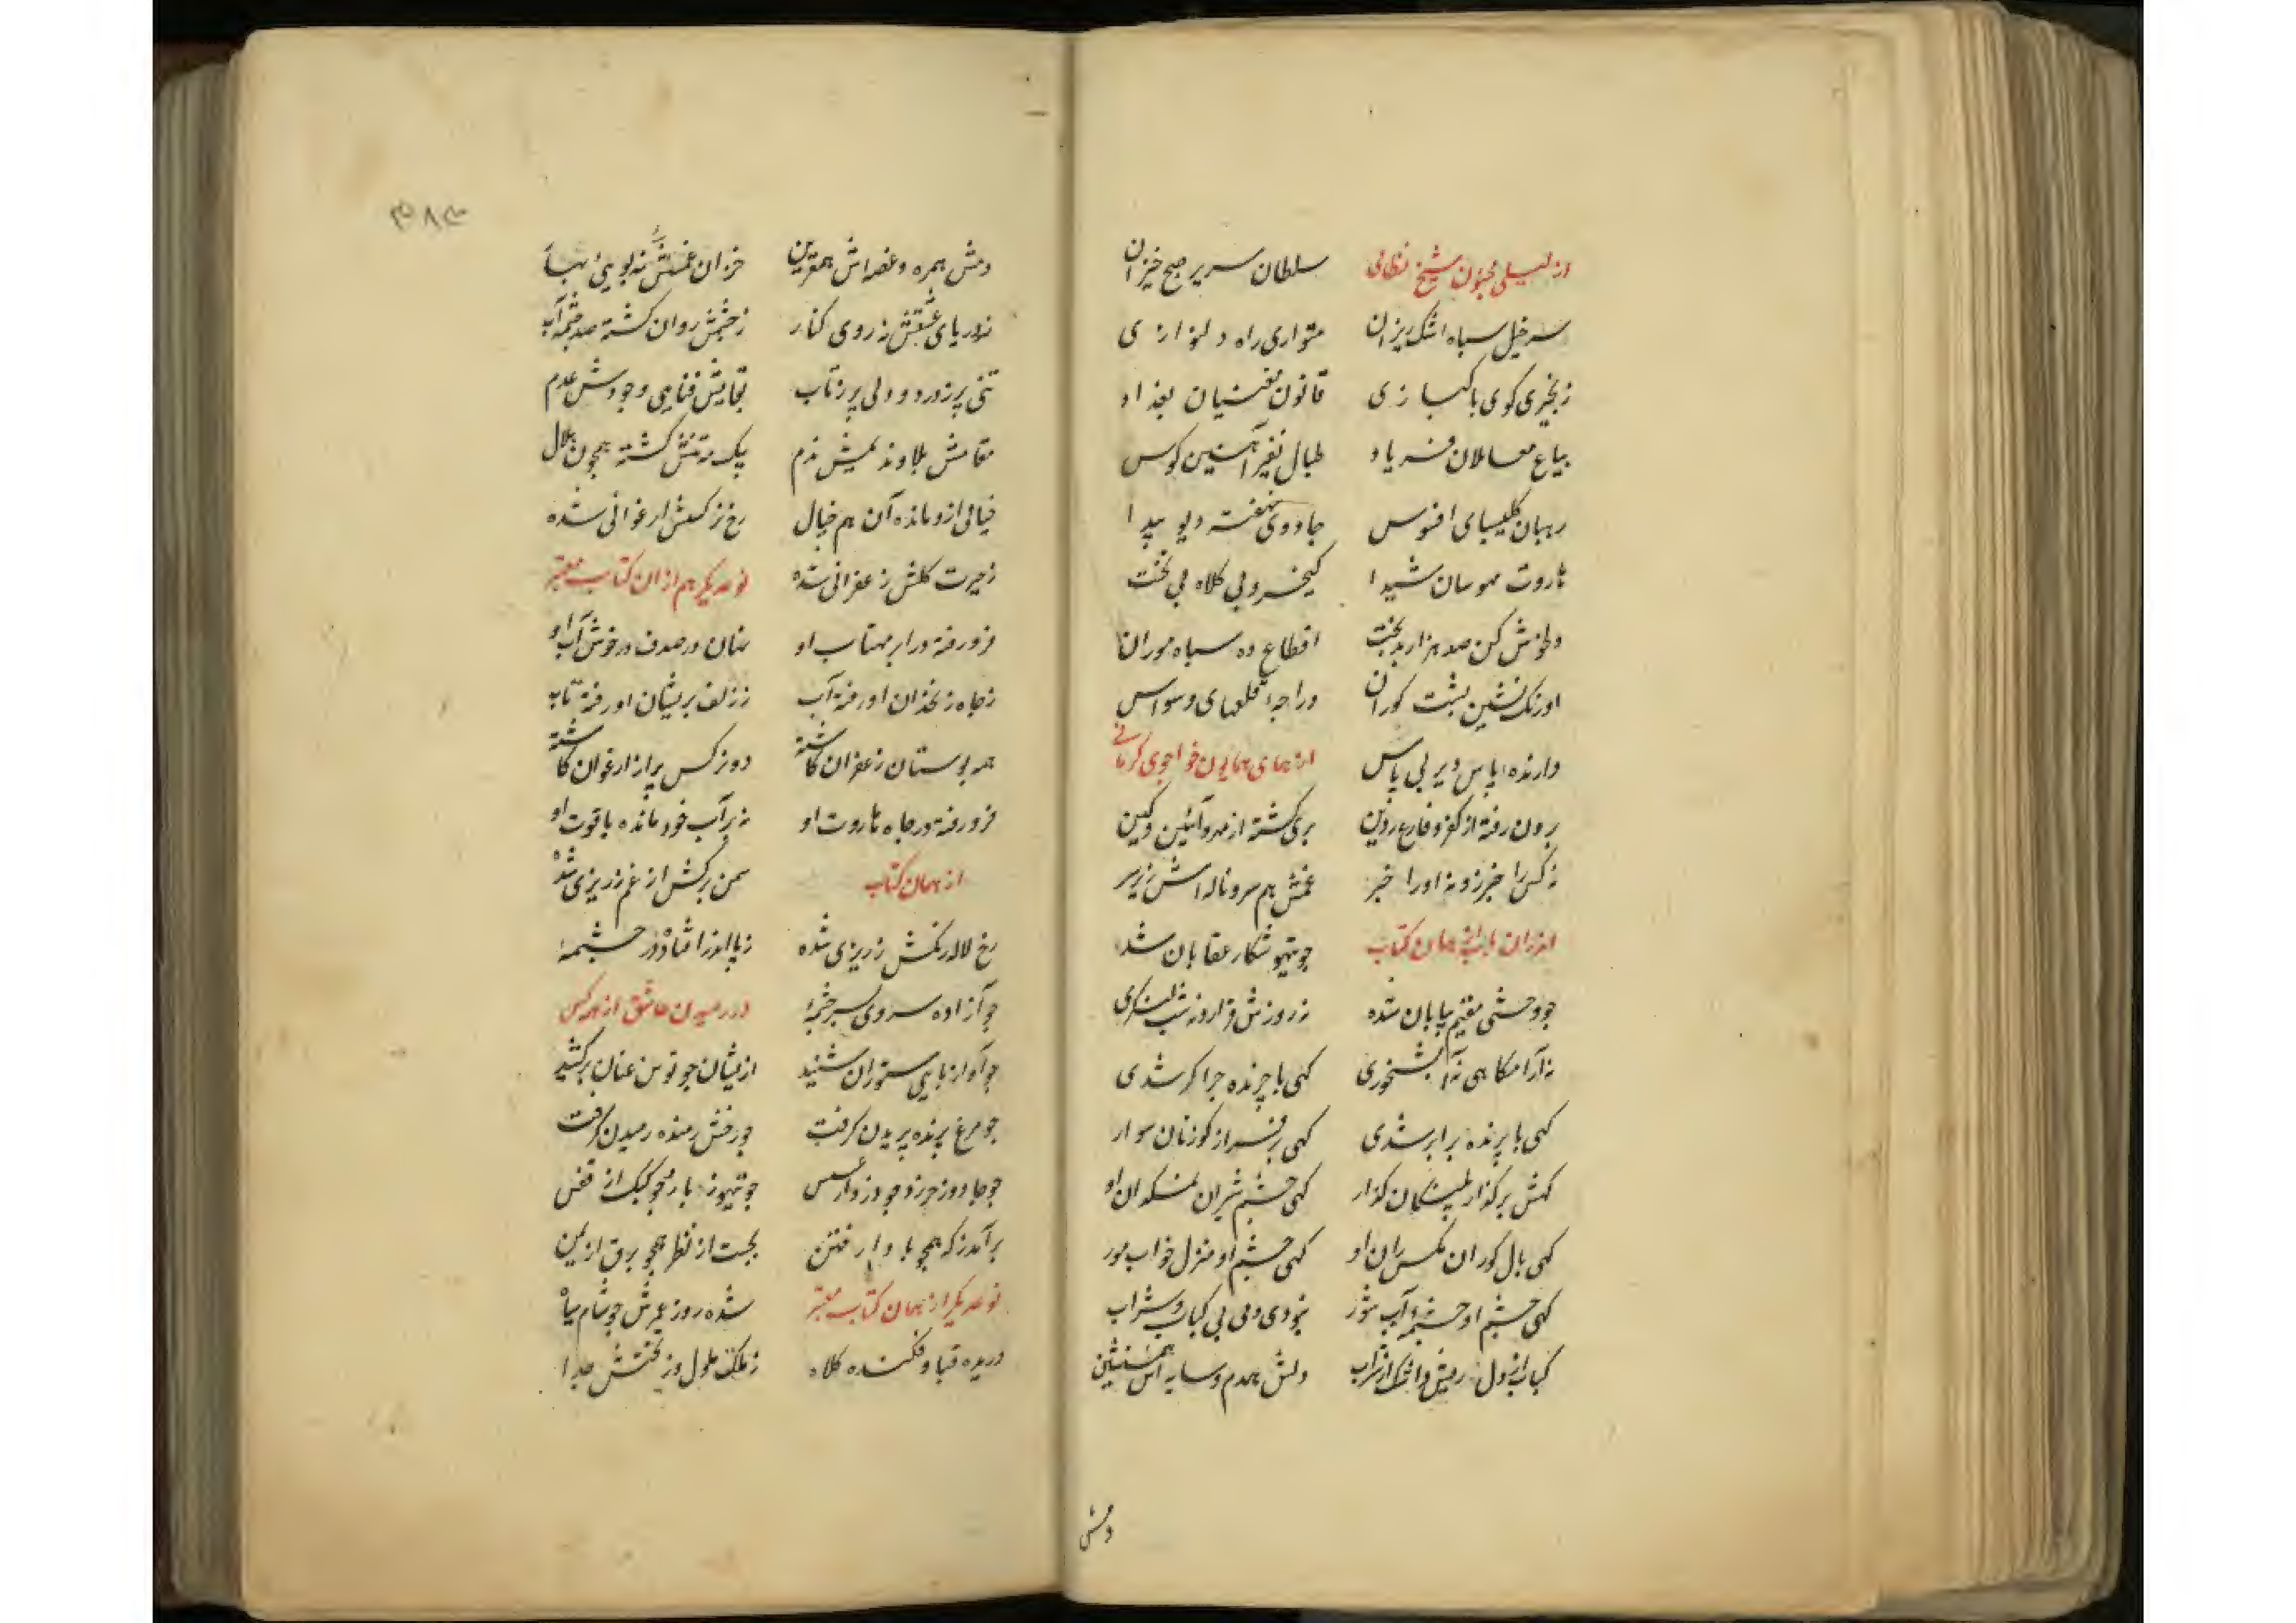 از لیلی مجنون شیخ نظامی سلطان سریر صبح خیزان
سرخیل سپاه اشک ریزان متواری راه دلنوازی
زنجیری کوی پاکبازی قانون مغنیان بغداد
بیاع معاملان فریاد طبال نفیر آهنین کوس
رهبان کلیسای افسوس جادوی نهفته دیو پیدا
هاروت مهوسان شیدا کیخسرو بی کلاه بی تخت
دلخوش کن صد هزار بدبخت اقطاع ده سپاه موران
اورنگ نشین پشت کوران دراجه قلعهای وسواس
دارنده پاس دیر بی پاس از همای همایون خواجوی کرمانی
برون رفته از کفر و فارغ ز دین بری کشته از مهر و آئین و کین
نه کس را خبر زو نه او را خبر غمش هم سر و ناله اش زیر
همان کتاب چو تیهو شکار عقابان شده
چو وحشی مقیم بیابان شده نه روزش قرار و نه شب
نه آرامکاهی نه آبشخوری کهی با چرنده چرا کر شدی
کهی با پرنده برابر شدی کهی بر فراز کوزنان سوار
کهش بر کذار پلنکان کذار کهی چشم شیران او
کهی بال کوران مکس ران او کهی چشم او منزل خواب مور
کهی چشم او چشمه آب شور نخودی و می بی کباب و شراب
کباب از دل ریش و اشک از شراب دلش همدم و سایه اش همنشین
دمش
۳۸۴
دمش همره و غصه اش همقرین خزان غمش نه بویی بهار
ز دریای عشقش نه روی کنار ز چشمش روان کشته صد چشمه آب
تنی پر ز درد و دلی پر ز تاب بقایش فنایی وجودش عدم
مقامش بلا و ندیمش ندم یک مه تنش کشته همچون هلال
خیالی ازو مانده آن هم خیال رخ زر کمش ارغوانی شده
ز حیرت کلش زعفرانی شده نوعدیکر هم از ان کتاب معتبر
فرو رفته در ابر مهتاب او نهان در صدف در خوش آب او
ز چاه زنخدان او رفته آب ز زلف پریشان او رفته تاب
همه بوستان زعفران کاشته دو نرکس پر از ارغوان کاشته
فرو رفته در چاه هاروت او نه بر آب خود مانده یاقوت او
از همان کتاب سمن برکش از غم زریری شده
رخ لاله رنکش زریری شده ز پا اندر افتاد در چشمه
چو آزاده سروی بسر چشمه در رمیدن عاشق از هر کس
چو آواز پای ستوران شنید ازیشان چو توسن عنان برکشید
چو مرغ پرنده پریدن کرفت چو رخش رمنده رمیدن کرفت
چو جادو ز حرز و چو دزد از عسس چو تیهو ز باز و چو کبک از قفس
برآمد ز که همچو باد از فتن بجست از نظر همچو برق از یمن
نوعدیکر از همان کتاب معتبر شده روز عمرش چو شام سیاه
دریده قبا و فکنده کلاه ز ملکت ملول و ز تختش جدا